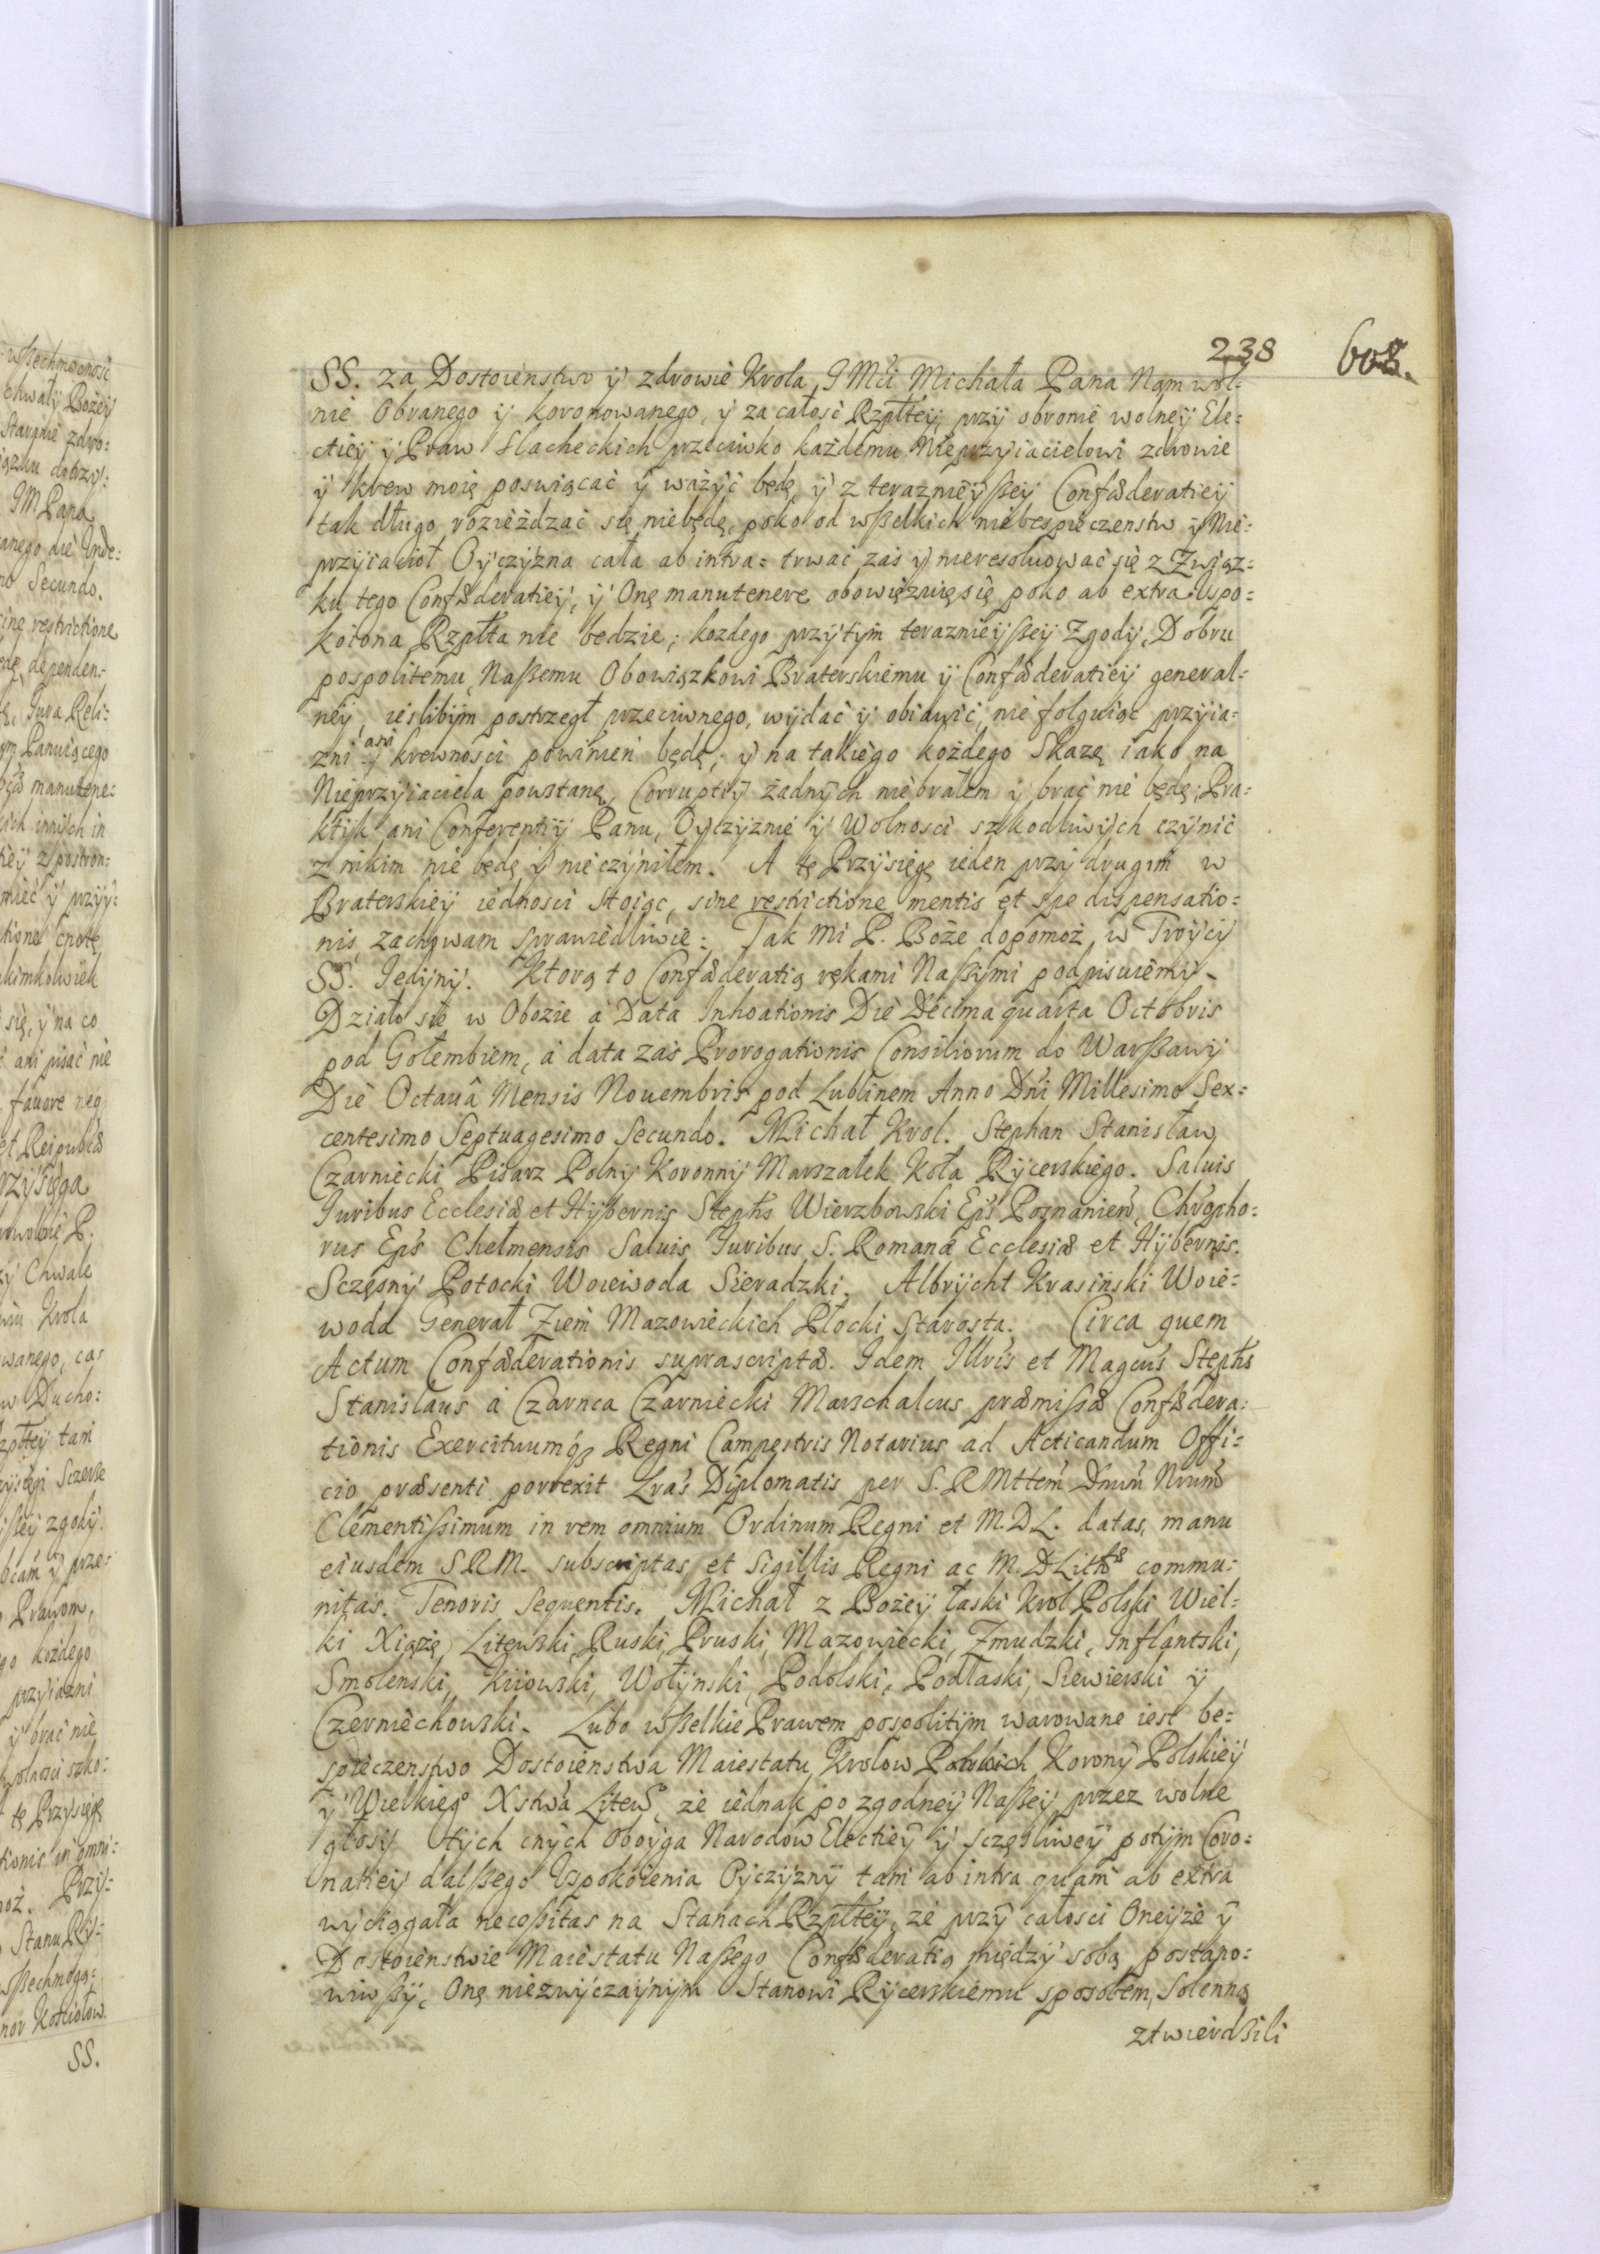 238
608.
SS. za Dostoienstwo y zdrowie Krola JMci Michała Pana Nam wol-
nie Obranego y koronowanego, y za całosc Rzpltey, przy obronie wolney Ele-
ctiey y Praw slacheckich przeciwko każdemu Nieprzyiacielowi zdrowie
y krew moię poswiącać y ważyć będę, y z teraznieyßey Confæderatiey
tak długo rozieżdzać się niebędę, poko od wßelkich niebespieczenstw y Nie-
przyiacioł Oyczyzna cała ab intra = trwać zaś y nieresoluować się z Związ-
ku tego Confæderatiey, y Onę manutenere obowięzuięsię poko ab extra uspo-
koiona Rzplta nie będzie; kozdego przytym teraznieyßey Zgody, Dobru
pospolitemu, Naßemu Obowiązkowi Braterskiemu y Confæderatiey general-
ney, ieslibym postrzegł przeciwnego, wydać y obiawić, nie folguiąc przyia-
zni ani krewnosci powinien będę, y na takiego każdego Skazę iako na
Nieprzyiaciela powstanę, Corruptiy żadnych niebrałem y brać nie będę, Pra-
ktyk ani Conferentiy Panu, Oyczyznie y Wolnosci szkodliwych czynić
z nikim nie będę y nieczyniłem. A tę Przysięgę ieden przy drugim w
Braterskiey iednosci stoiąc, sine restrictione mentis et spe dispensatio-
nis zachowam sprawiedliwie: Tak mi P. Boże dopomoż w Troycy
SS. Jedyny. Ktorą to Confæderatią rękami Naßymi podpisuiemy.
Działo sie w Obozie à Data Inhoationis Die Decima quarta Octobris
pod Gołembiem, à data zaś Prorogationis Consiliorum do Warßawy
Die Octauâ Mensis Nouembris pod Lublinem Anno Dni Millesimo Sex-
centesimo Septuagesimo Secundo. Michał Krol. Stephan Stanisław
Czarniecki Pisarz Polny Koronny Marszałek Koła Rycerskiego. Saluis
Juribus Ecclesiæ et Hybernis Stephs Wierzbowski Eps Poznanien, Chrypho-
rus Eps Chełmensis Saluis Juribus S. Romanæ Ecclesiæ et Hybernis.
Sczęsny Potocki Woiewoda Sieradzki. Albrycht Krasiński Woie-
woda Generał Ziem Mazowieckich Płocki Starosta. Circa quem
Actum Confæderationis suprascriptæ. Idem Illris et Magcus Stephs
Stanislaus à Czarnca Czarniecki Marschalcus præmißæ Confædera-
tionis Exercituumqß Regni Campestris Notarius ad Acticandum Offi-
cio præsenti porrexit Lras Diplomatis per S.RMttem Dnum Nrum
Clementißimum in rem omnium Ordinum Regni et M.D.L. datas, manu
eiusdem SRM. subscriptas, et Sigillis Regni ac M.DLithæ commu-
nitas. Tenoris sequentis. Michał z Bożey łaski Krol Polski Wiel-
ki Xiążę Litewski, Ruski, Pruski, Mazowiecki, Zmudzki, Inflantski,
Smolenski, Kiiowski, Wołynski, Podolski, Podlaski, Siewierski y
Czerniechowski. Lubo wßelkie Prawem pospolitym warowane iest be-
spieczenstwo Dostoienstwa Maiestatu Krolow Polskich Korony Polskiey
y Wielkieg° Xstwa Litew°, że iednak po zgodney Naßey przez wolne
głosy tych cnych oboyga Narodow Electiey y sczęsliwey potym Coro-
natiey dalßego Uspokoienia Oyczyzny tam ab intra quam ab extra
wyciągała neceßitas na Stanach Rzpltey, ze przy całosci Oneyże y
Dostoienstwie Maiestatu Naßego Confæderatią między sobą postano-
wiwßy, Onę niezwyczaynym Stanowi Rycerskiemu sposobem, Solenną
ztwierdzili
SS.